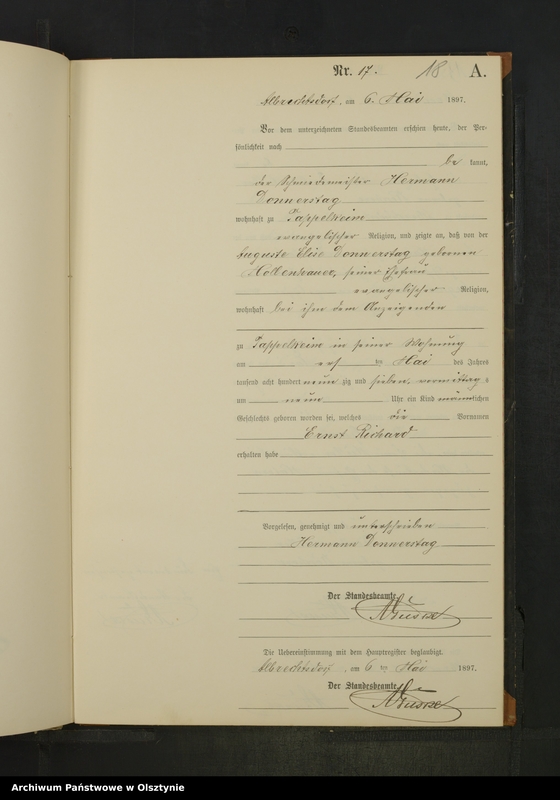 Nr. 17. 18 A.
Albrechtsdorf, am 6. Mai 1897.
Vor dem unterzeichneten Standesbeamten erschien heute, der Per-
sönlichkeit nach
be kannt,
der Schmiedemeister Hermann
Donnerstag
wohnhaft zu Pappelheim
evangelischer Religion, und zeigte an, daß von der
Auguste Elise Donnerstag geborenen
seiner Ehefrau
evangelischer Religion,
wohnhaft bei ihm dem Anzeigenden
zu Pappelheim in seiner Wohnung
am ersten Mai des Jahres
tausend acht hundert neun zig und sieben, vormittags
um neun Uhr ein Kind männlichen
Geschlechts geboren worden sei, welches die Vornamen
Ernst Richard
erhalten habe
Vorgelesen, genehmigt und unterschrieben
Hermann Donnerstag
Der Standesbeamte.
Die Uebereinstimmung mit dem Hauptregister beglaubigt.
Albrechtsdorf, am 6 ten Mai 1897.
Der Standesbeamte.
Archiwum Państwowe w Olsztynie